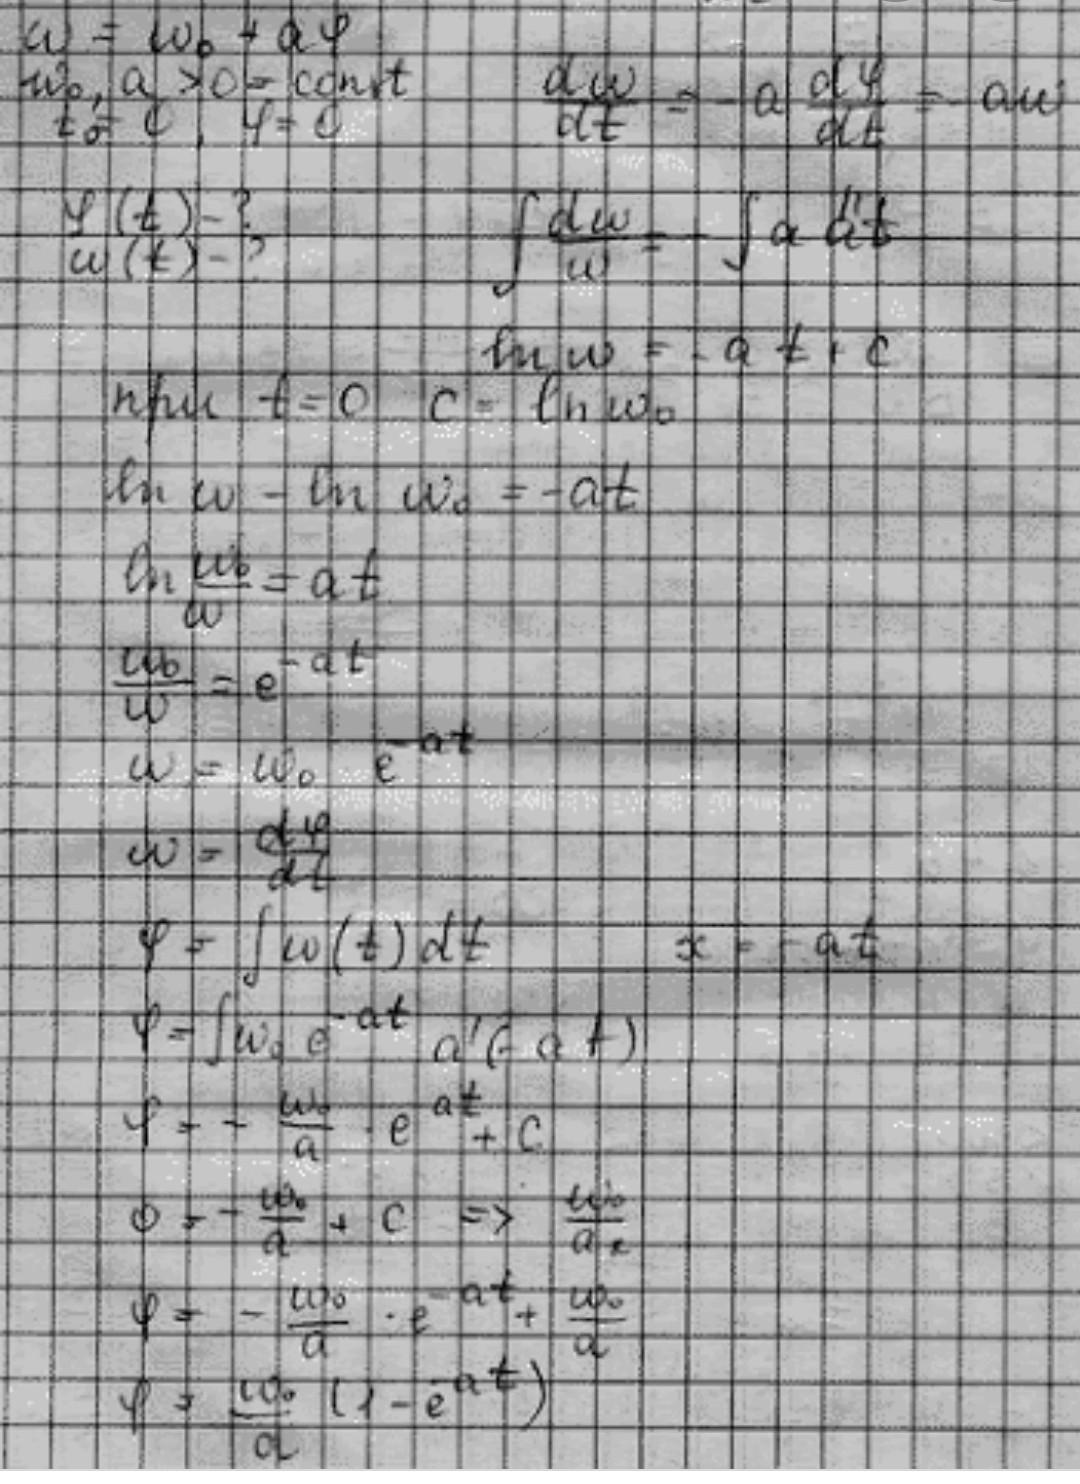 ω = ω₀ + aφ
ω₀, a > 0 = const
t₀ = 0, φ = 0
dω/dt = - a dφ/dt = - aω
φ(t) - ?
ω(t) - ?
∫ dω/ω = - ∫ a dt
ln ω = - a t + c
при t = 0 c = ln ω₀
ln ω - ln ω₀ = -at
ln ω₀/ω = at
ω₀/ω = e^(-at)
ω = ω₀ e^(-at)
ω = dφ/dt
φ = ∫ ω(t) dt x = - at
φ = ∫ ω₀ e^(-at) d(-at)
φ = - ω₀/a · e^(-at) + C
0 = - ω₀/a + C => ω₀/a
φ = - ω₀/a · e^(-at) + ω₀/a
φ = ω₀/a (1 - e^(-at))